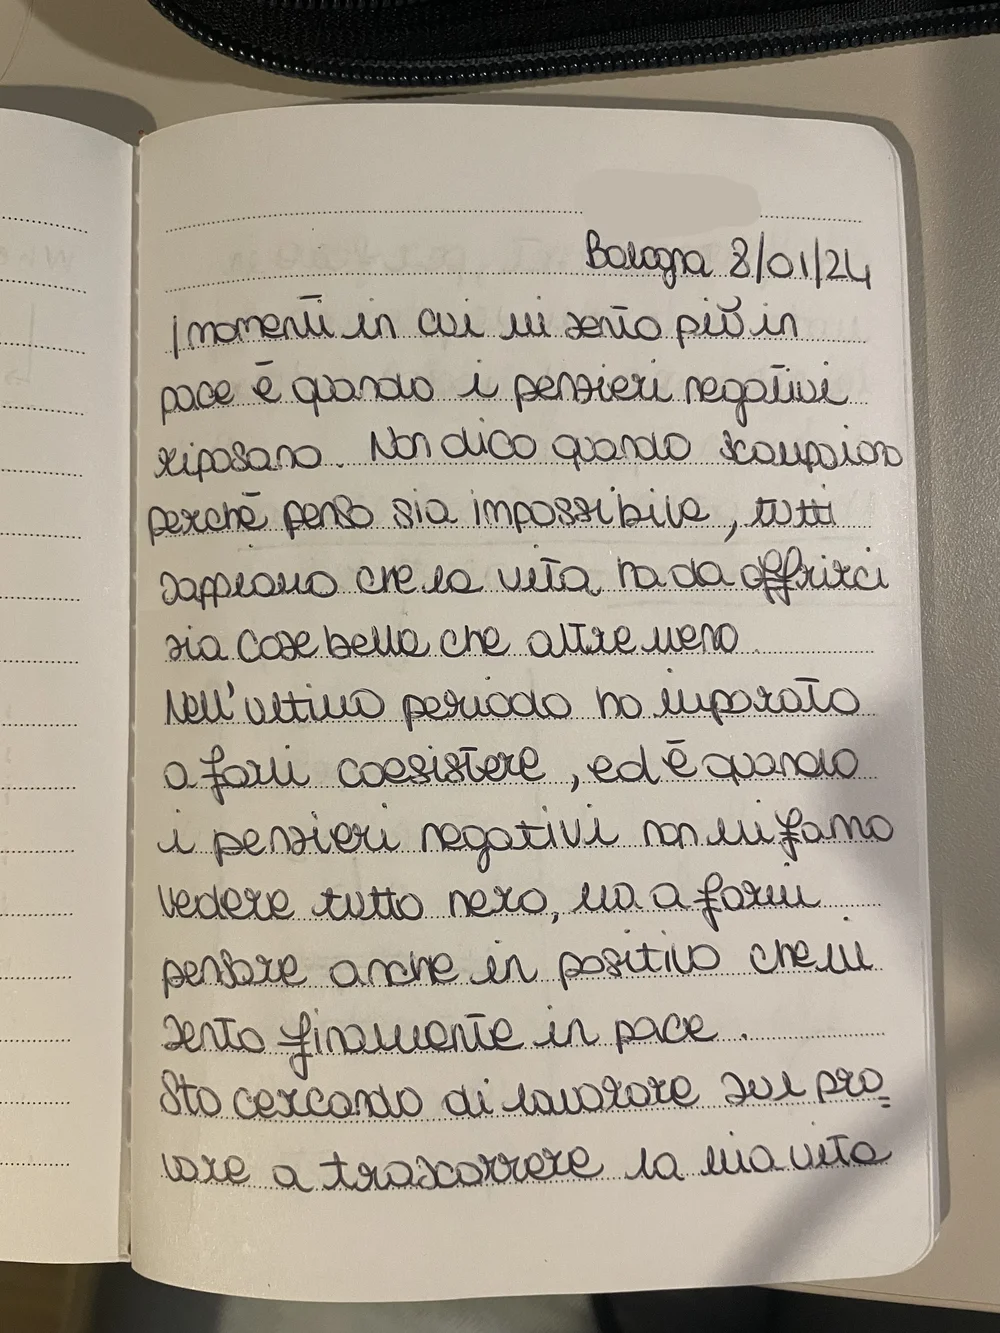 Bologna 8/01/24
I momenti in cui mi sento più in
pace è quando i pensieri negativi
riposano. Non dico quando scompaiono
perchè penso sia impossibile, tutti
sappiamo che la vita ha da offrirci
sia cose belle che altre meno
Nell'ultimo periodo ho imparato
a farli coesistere, ed è quando
i pensieri negativi non mi fanno
vedere tutto nero, ma a farmi
pensare anche in positivo che mi
sento finamente in pace.
Sto cercando di lavorare sul pro=
vare a trascorrere la mia vita